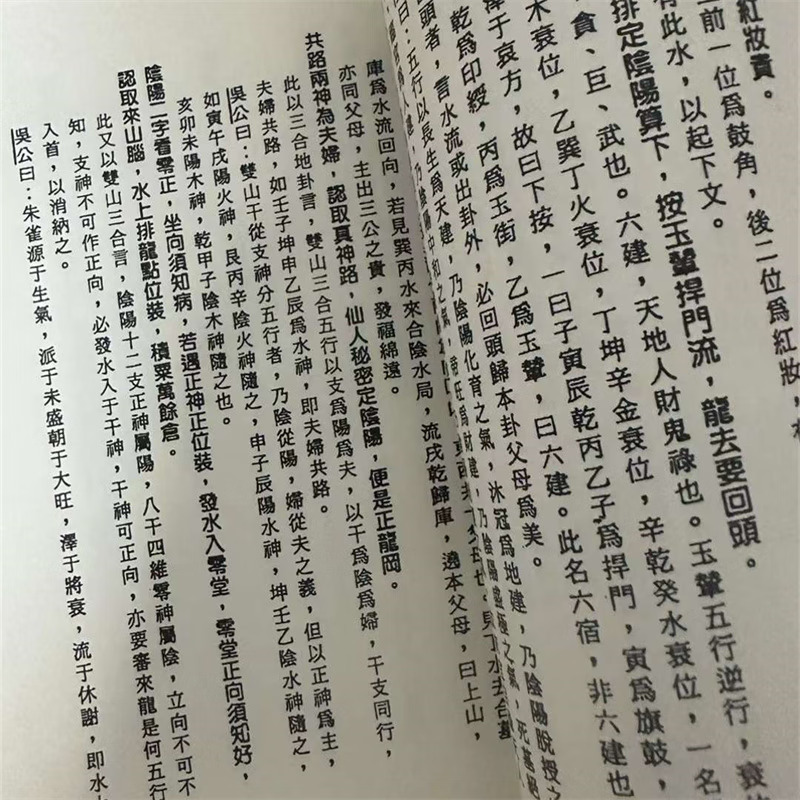 紅妝貴。
前一位爲鼓角，後二位爲紅妝，
有此水，以起下文。
排定陰陽算下，按玉輦捍門流，龍去要回頭。
貪、巨、武也。六建，天地人財鬼祿也。玉輦五行逆行，衰
木衰位，乙巽丁火衰位，丁坤辛金衰位，辛乾癸水衰位，一名
澤于衰方，故曰下按，一曰子寅辰乾丙乙子爲捍門，寅爲旗鼓，
乾爲印綬，丙爲玉街，乙爲玉輦，曰六建。此名六宿，非六建也
頭者，言水流或出卦外，必回頭歸本卦父母爲美。
曰：五行以長生爲天建，乃陰陽化育之氣，沐冠爲地建，乃陰陽脫授之
建，乃陰陽中和之氣，帝旺爲財建，乃陰陽盛極之氣，死墓絕
庫爲水流回向，若見巽丙水來合陰水局，流戌乾歸庫，邊本父母，曰上山，
亦同父母，主出三公之貴，發福綿遠。
共路兩神為夫婦，認取真神路，仙人秘密定陰陽，便是正龍岡。
此以三合地卦言，雙山三合五行以支爲陽爲夫，以干爲陰爲婦，干支同行，
夫婦共路，如壬子坤申乙辰爲水神，即夫婦共路。
吳公曰：雙山干從支神分五行者，乃陰從陽，婦從夫之義，但以正神爲主，
如寅午戌陽火神，艮丙辛陰火神隨之，申子辰陽水神，坤壬乙陰水神隨之，
亥卯未陽木神，乾甲子陰木神隨之也。
陰陽二字看零正，坐向須知病，若遇正神正位裝，發水入零堂，零堂正向須知好，
認取來山腦，水上排龍點位裝，積粟萬餘倉。
此又以雙山三合言，陰陽十二支正神屬陽，八干四維零神屬陰，立向不可不
知，支神不可作正向，必發水入于干神，干神可正向，亦要審來龍是何五行
入首，以消納之。
吳公曰：朱雀源于生氣，派于未盛朝于大旺，澤于將衰，流于休謝，即水